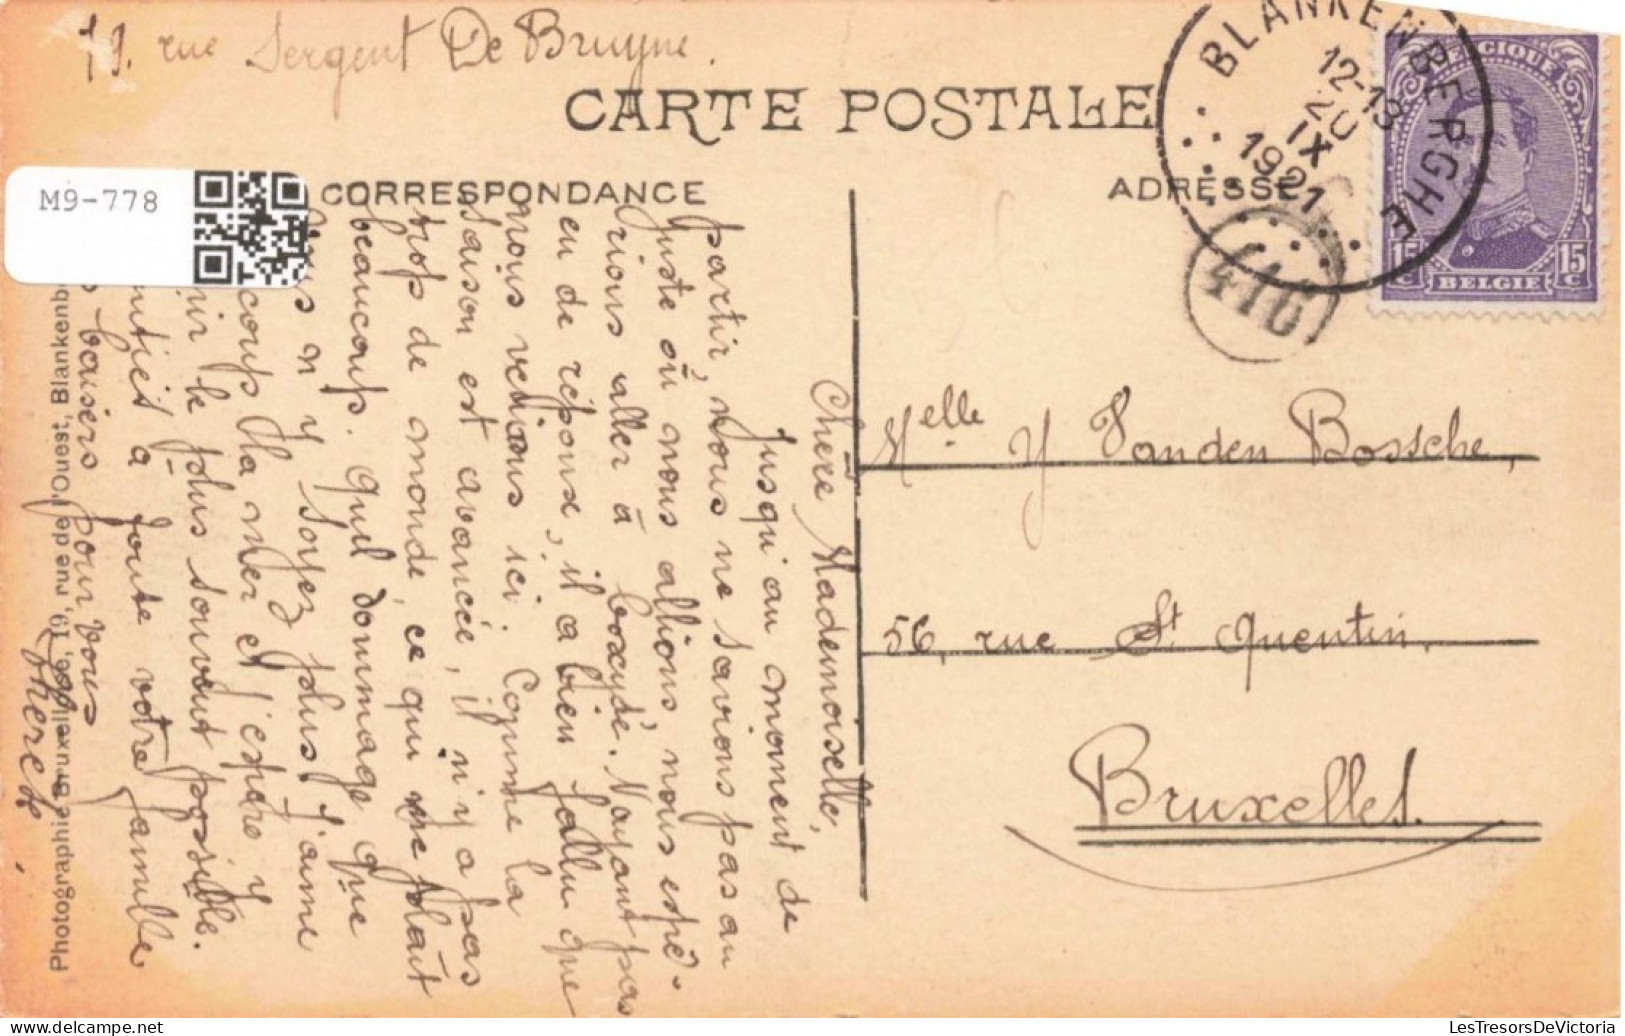 19. rue Sergent De Bruyne.
CARTE POSTALE
CORRESPONDANCE
ADRESSE
M9-778
BLANKENBERGHE
12-13
20
IX
1921
416
BELGIQUE
15
C
15
C
BELGIE
Melle Y Vanden Bossche,
56, rue St Quentin,
Bruxelles.
Chère Mademoiselle,
Jusqu'au moment de
partir, nous ne savions pas au
juste où nous allions, nous espé-
rions aller à Coxyde. N'ayant pas
eu de réponse, il a bien fallu que
nous venions ici. Comme la
saison est avancée, il n'y a pas
trop de monde, ce qui me plaît
beaucoup. Quel dommage que
vous n'y soyez plus! J'aime
coup la mer et j'espère y
le plus souvent possible.
à toute votre famille
baisers pour vous
Photographie Bruxelloise, 19, rue de l'Ouest, Blankenb
LesTresorsDeVictoria
LesTresorsDeVictoria